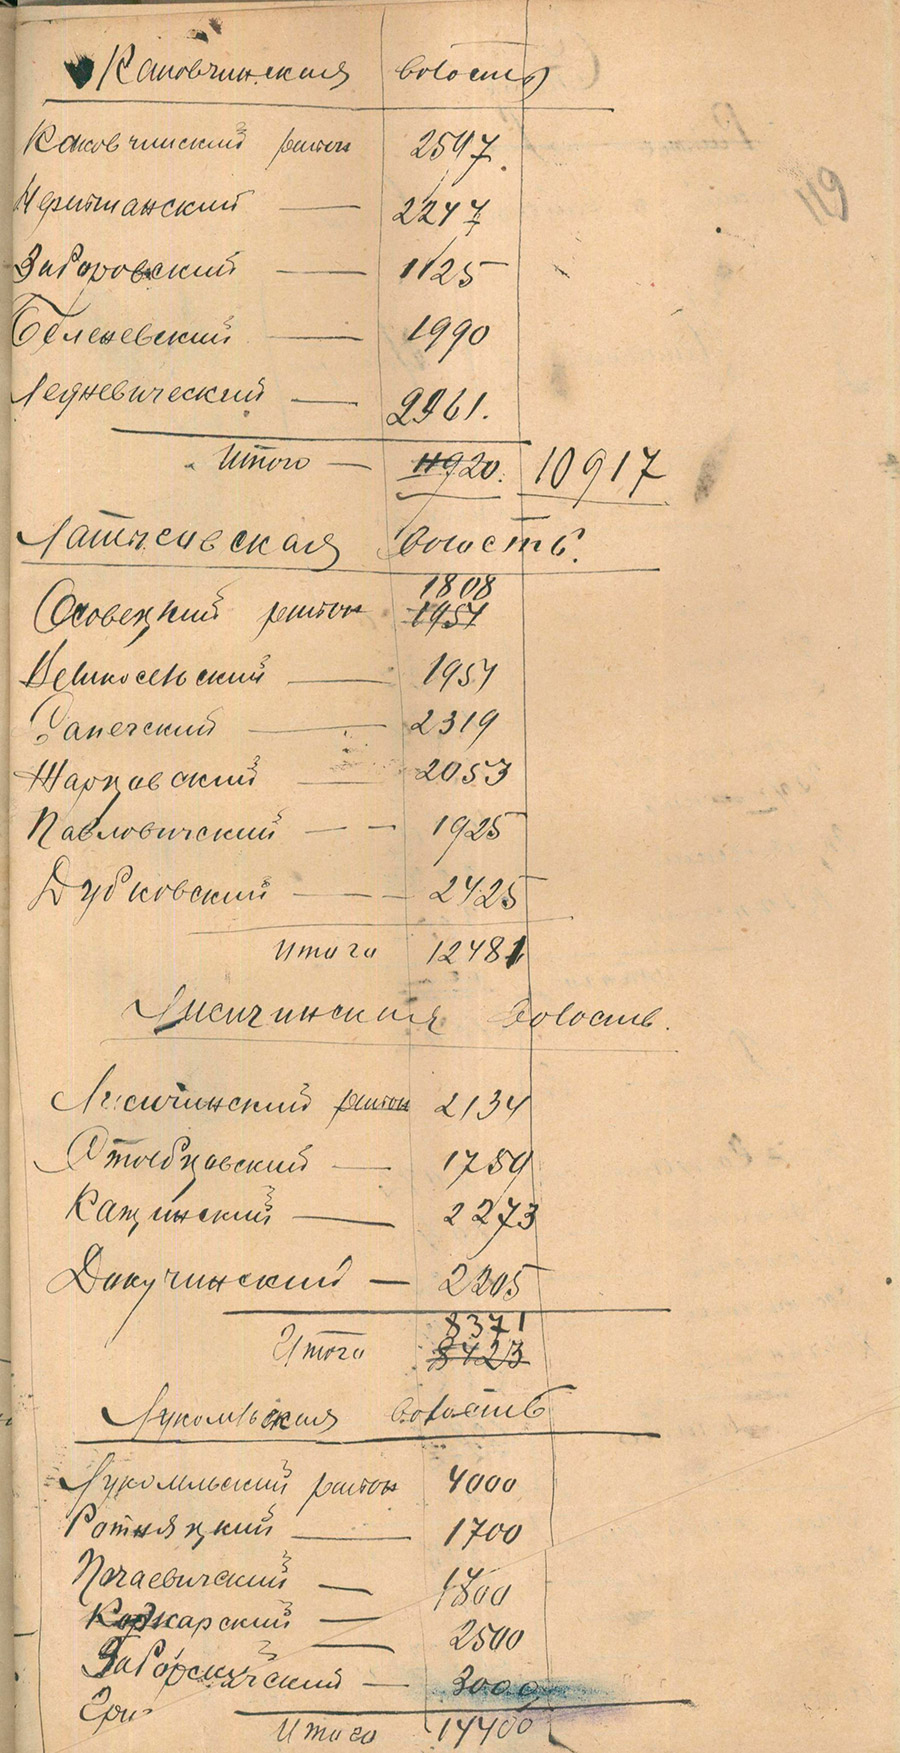 Каповчинская волость
Каковчинский район 2597
Черитчанский — 2247
Заборовский — 1125
Беленевский — 1990
Ледневический — 2961.
Итого — 11920. 10917
Латыговская волость.
1808
Осовецкий район 1951
Великосельский — 1957
Запечский — 2319
Жарцовский — 2053
Павловичский — 1925
Дубковский — 2425
Итого 12481
Лисичинская волость.
Лисичинский район 2134
Столбцовский — 1759
Кащинский — 2273
Докучинский — 2205
8371
Итого 8423
Лукомльская волость
Лукомльский район 4000
Ротняцкий — 1700
Почаевичский — 1800
Коркарский — 2500
3000
Гри-
Итого 14400